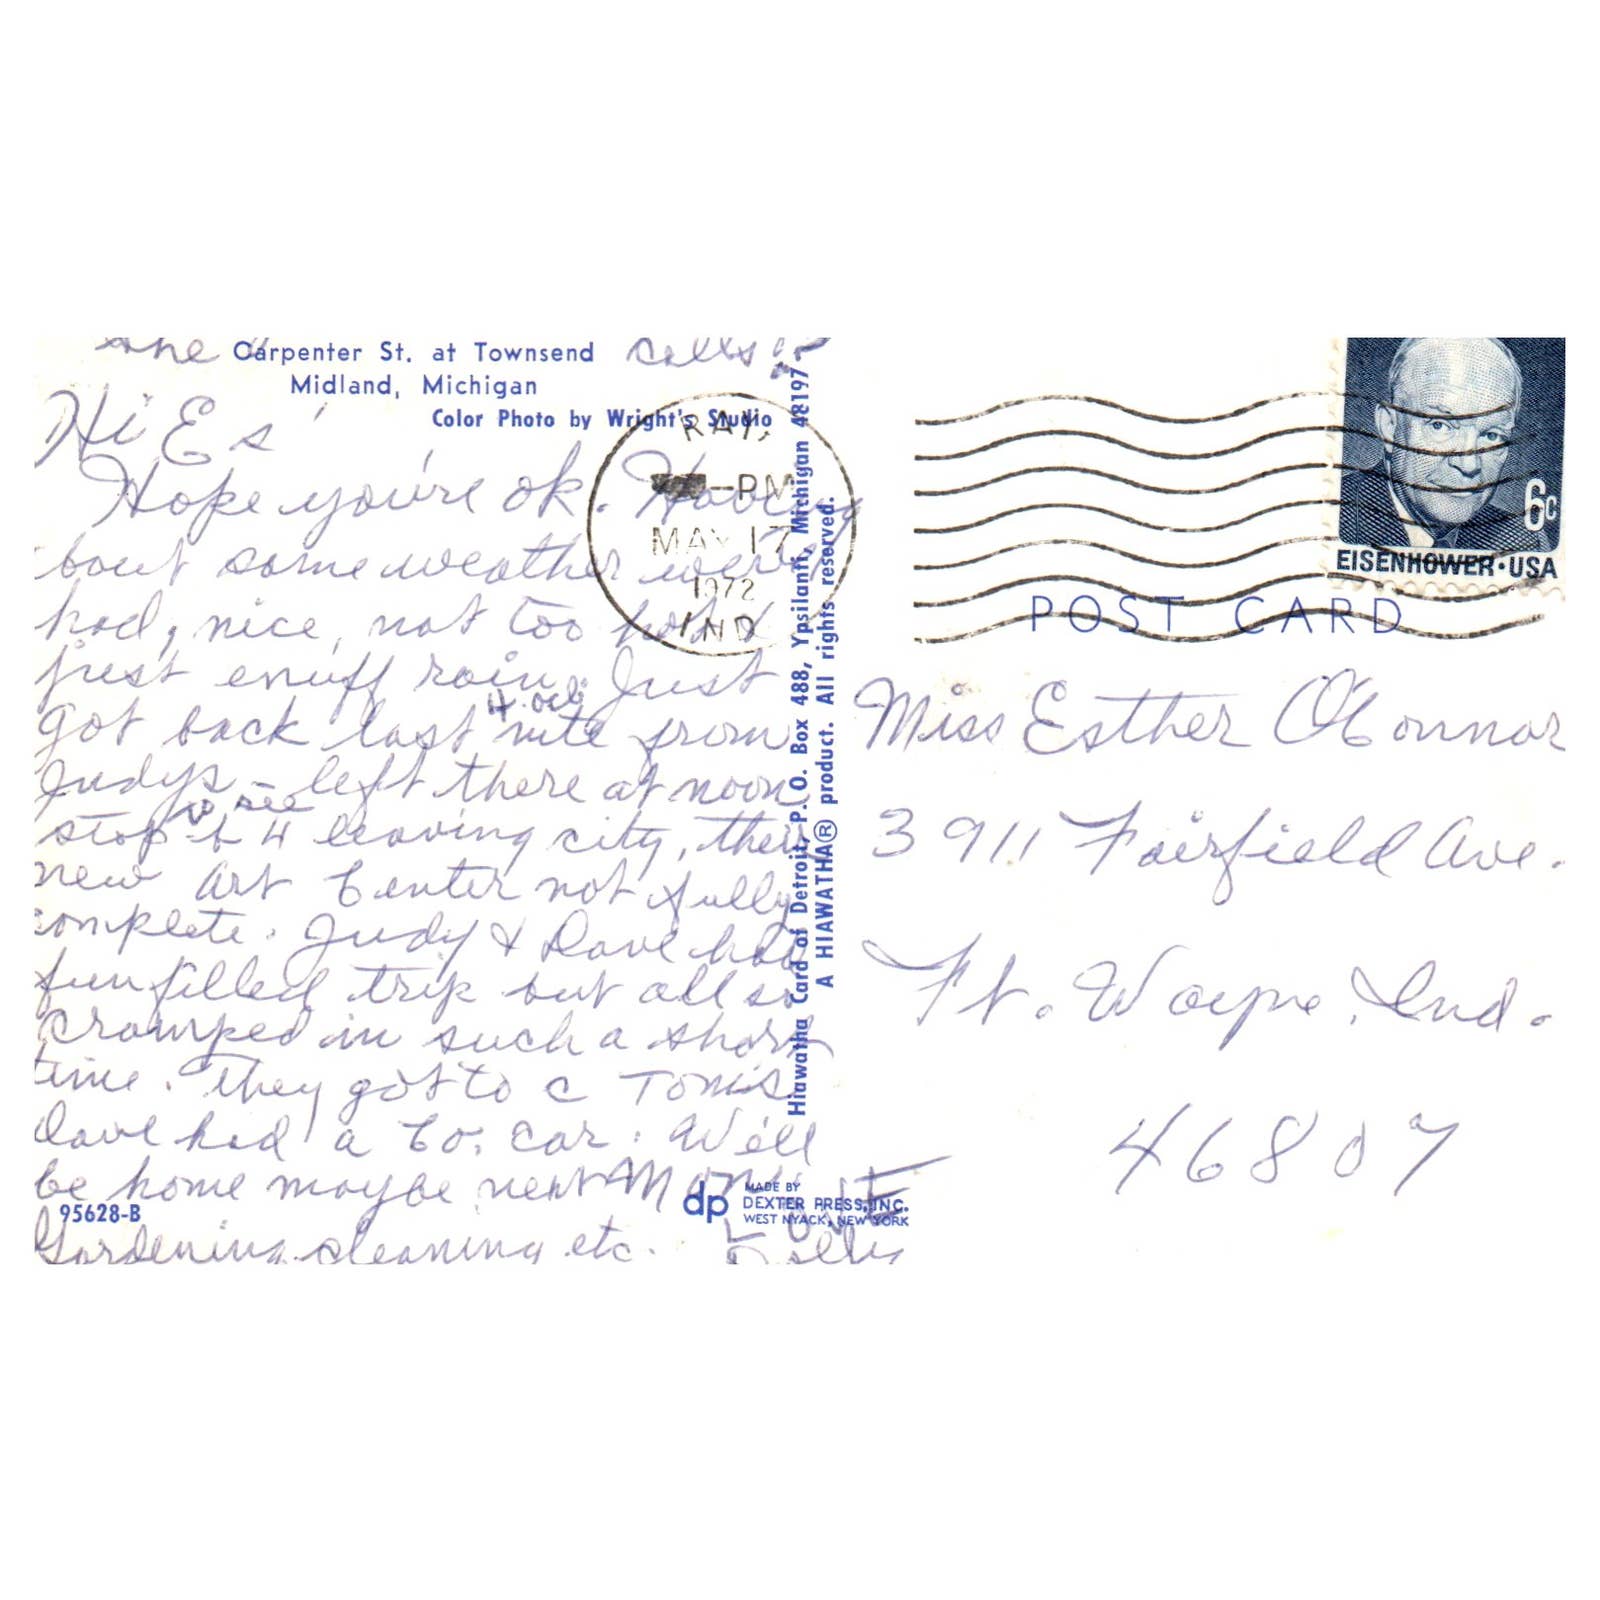 the
calls
Carpenter St. at Townsend
Midland, Michigan
Color Photo by Wright's Studio
Hi Es'
Hope you're ok. Having
bout same weather we've
had, nice, not too hot &
just enuff rain. Just
got back last nite from
4 o'cl.
Judys – left there at noon
to see
stop b 4 leaving city, their
new Art Center not fully
complete. Judy & Dave had
fun filled trip but all so
cramped in such a short
time. They got to c Toms
Dave had a Co. car. We'll
be home maybe next Mon.
Gardening, cleaning etc.
LOVE
95628-B
dp
MADE BY
DEXTER PRESS, INC.
WEST NYACK, NEW YORK
Hiawatha Card of Detroit, P. O. Box 488, Ypsilanti, Michigan 48197
A HIAWATHA® product. All rights reserved.
RAY,
PM
MAY 17
1972
IND
6c
EISENHOWER·USA
POST CARD
Miss Esther O'Connor
3911 Fairfield Ave.
Ft. Wayne, Ind.
46807